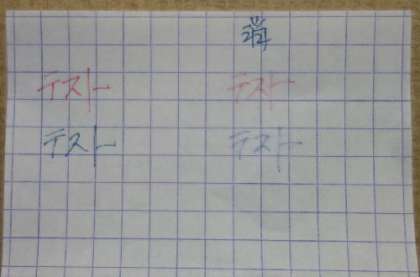 テスト テスト
テスト テスト